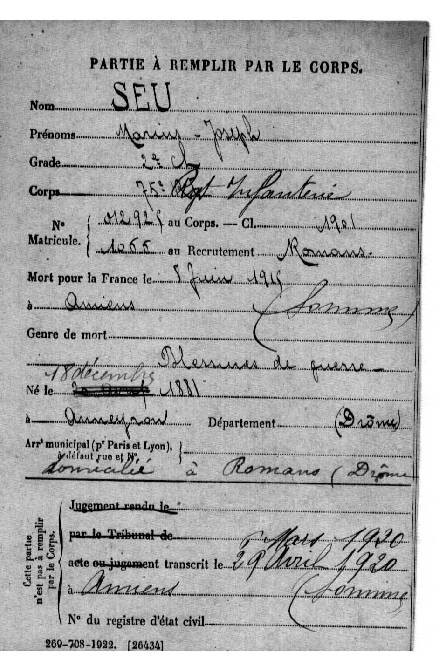 PARTIE À REMPLIR PAR LE CORPS.
Nom SEU
Prénoms Marius - Joseph
Grade 2e cl
Corps 75e Rgt Infanterie
N° Matricule. { 012925 au Corps. — Cl. 1901
1055 au Recrutement Romans.
Mort pour la France le 8 Juin 1915
à Amiens (Somme)
Genre de mort
Blessures de guerre
18 décembre
Né le 1881
à Anneyron Département (Drôme)
Arrt municipal (pr Paris et Lyon), }
à défaut rue et N°.
domicilié à Romans (Drôme
Cette partie n'est pas à remplir par le Corps.
Jugement rendu le
par le Tribunal de Mars 1920
acte ou jugement transcrit le 29 Avril 1920
à Amiens (Somme)
N° du registre d'état civil
269-708-1922. [26434]